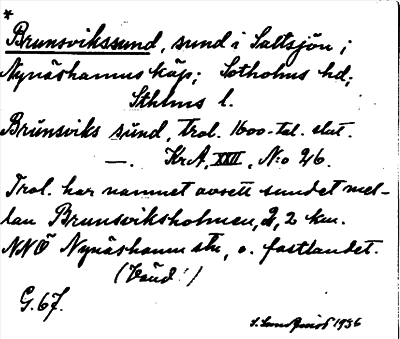 *
Brunsvikssund, sund i Saltsjön;
Nynäshamns köp; Sotholms hd;
Sthlms l.
Brunsviks sund, trol. 1600-tal. slut.
—. KrA, XXII, N:o 26.
Trol. har namnet avsett sundet mel-
lan Brunsviksholmen, 2,2 km.
NNÖ Nynäshamns stn, o. fastlandet.
(Vänd!)
G. 67.
1936